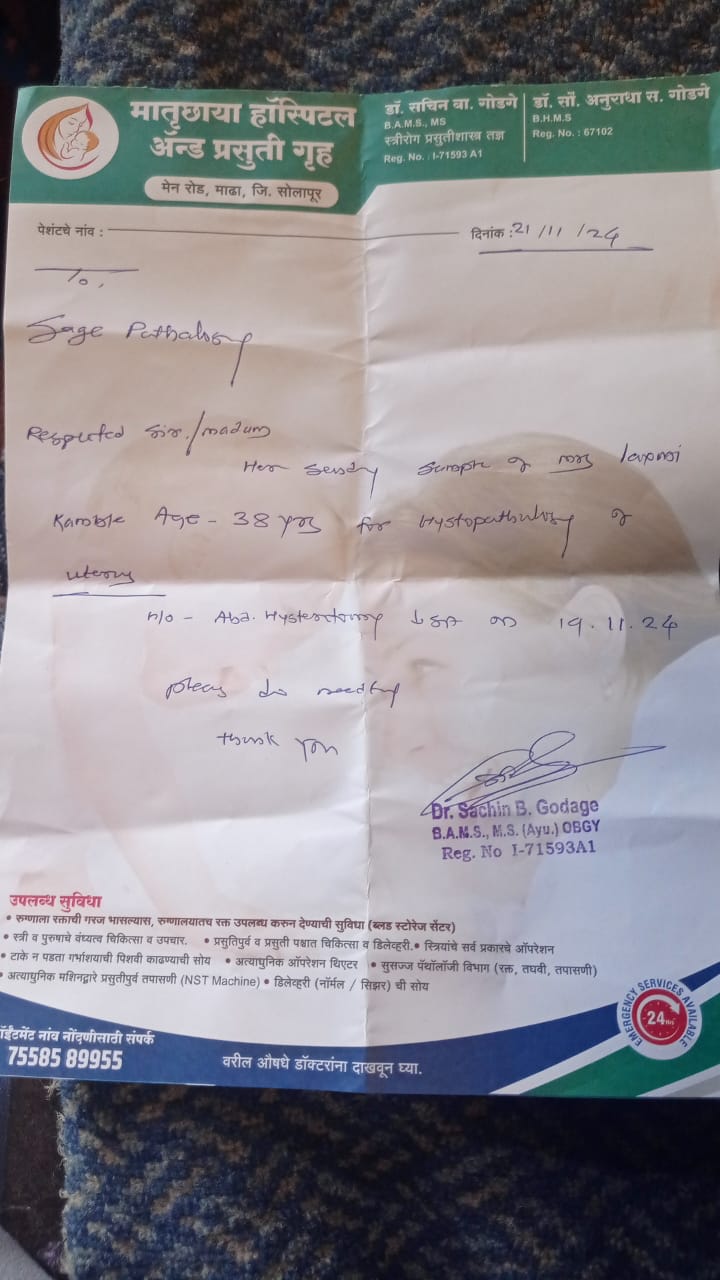 मातृछाया हॉस्पिटल
ॲन्ड प्रसुती गृह
मेन रोड, माढा, जि. सोलापूर
डॉ. सचिन बा. गोडगे
B.A.M.S., MS
स्त्रीरोग प्रसुतीशास्त्र तज्ञ
Reg. No. : I-71593 A1
डॉ. सौ. अनुराधा स. गोडगे
B.H.M.S
Reg. No. : 67102
पेशंटचे नांव :
दिनांक : 21/11/24
To,
Sage Pathology
Respected Sir./madam
sample of mrs laxmi
Kamble Age - 38 yrs for Hystopathology of
uterus
H/o - Abd. Hysterectomy ↓ on 19.11.24
do needful
thank you
Dr. Sachin B. Godage
B.A.M.S., M.S. (Ayu.) OBGY
Reg. No I-71593A1
उपलब्ध सुविधा
• रुग्णाला रक्ताची गरज भासल्यास, रुग्णालयातच रक्त उपलब्ध करुन देण्याची सुविधा (ब्लड स्टोरेज सेंटर)
• स्त्री व पुरुषाचे वंध्यत्व चिकित्सा व उपचार. • प्रसुतिपुर्व व प्रसुती पश्चात चिकित्सा व डिलेव्हरी. • स्त्रियांचे सर्व प्रकारचे ऑपरेशन
• टाके न पडता गर्भाशयाची पिशवी काढण्याची सोय • अत्याधुनिक ऑपरेशन थिएटर • सुसज्ज पॅथॉलॉजी विभाग (रक्त, लघवी, तपासणी)
• अत्याधुनिक मशिनद्वारे प्रसुतीपुर्व तपासणी (NST Machine) • डिलेव्हरी (नॉर्मल / सिझर) ची सोय
EMERGENCY SERVICES AVAILABLE
24 Hrs
नांव नोंदणीसाठी संपर्क
75585 89955
वरील औषधे डॉक्टरांना दाखवून घ्या.